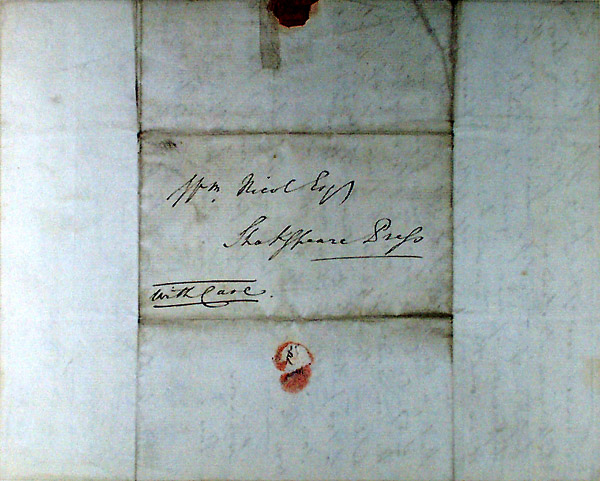 Wm. Nicol Esqr
Shakspeare Press
With Care.